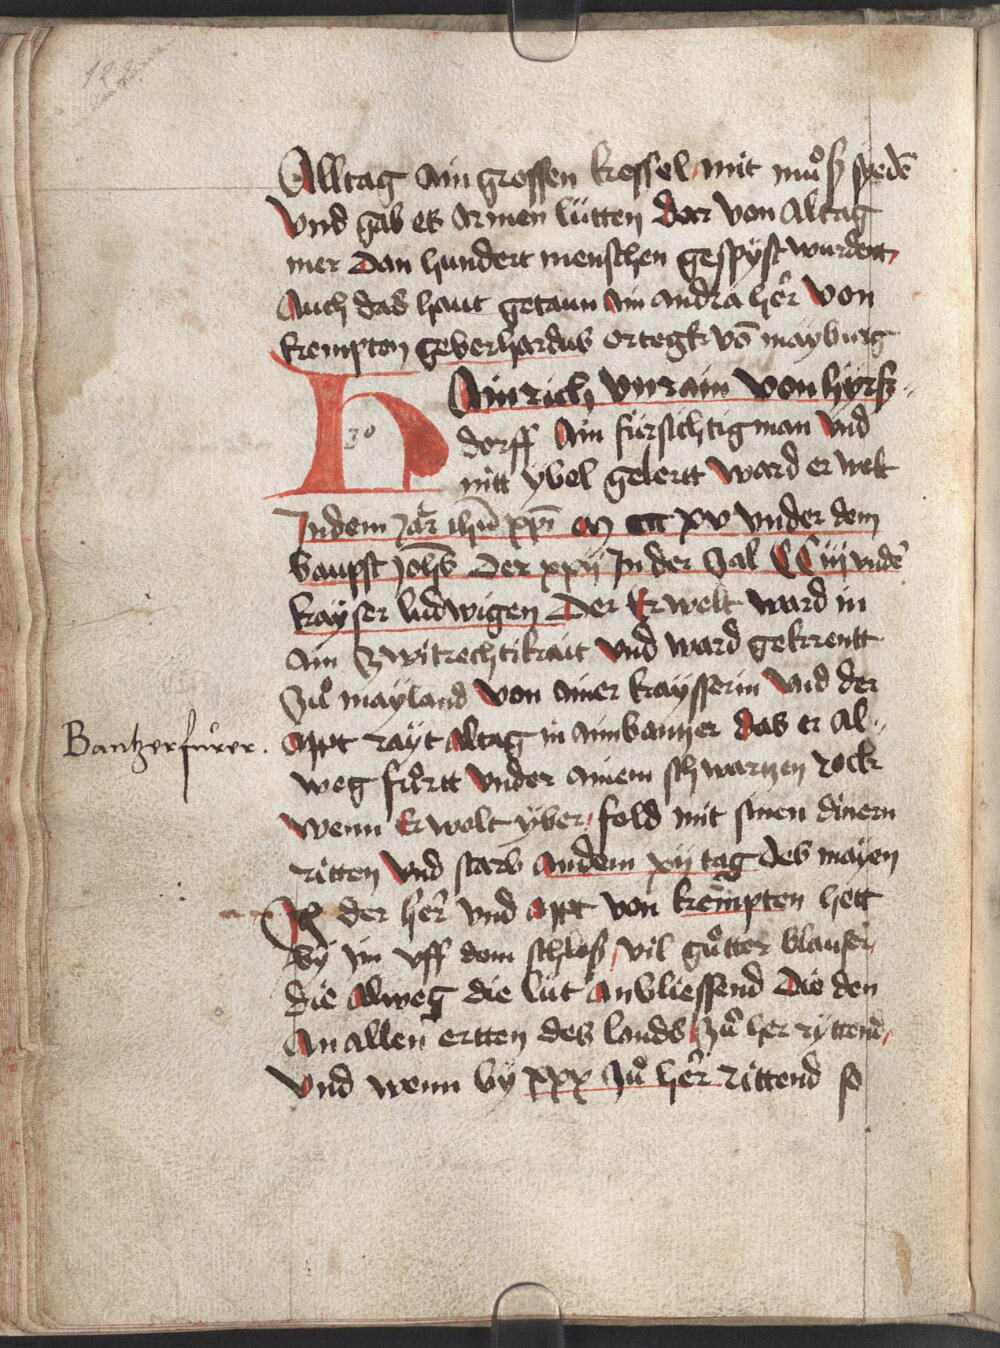 Alltag ain grossen kessel mit muͦß syedē
Vnd gab es armen lütten der von altag
mer dan hundert menschen gespÿst wurdent
Auch das haut getaun ain andra her von
kempton geberhardus ortegk vō mayburg
HAinrich vnrain von hürß
30
dorff Ain fürsichtig man vnd
nitt ybel gelertt ward er welt
In dem Jar ihū xp̄i M ccc xv vnder dem
baupst Johs̄ Der xxij In der zal CC iij vnder
kayser ludwigen Der Erwelt ward in
ain Zwitrechtikait vnd ward gekrentt
Zuͦ mayland von ainer kaysserin vnd der
appt rayt altag in aim bantzer das er al
Bantzerfuͦrer.
weg fuͦrtt vnder ainem schwartzen rock
wenn Er wolt ÿber feld mit sinen dinern
ritten vnd starb an dem xij tag des mayen
der her vnd appt von kempten hett
bÿ im vff dem schloß vil guͦtter blauser
die alweg die lüt anbliessend Die den
An allen ertten des lands zuͦ her ryttend
Vnd wenn bÿ xxx zuͦ her rittend so